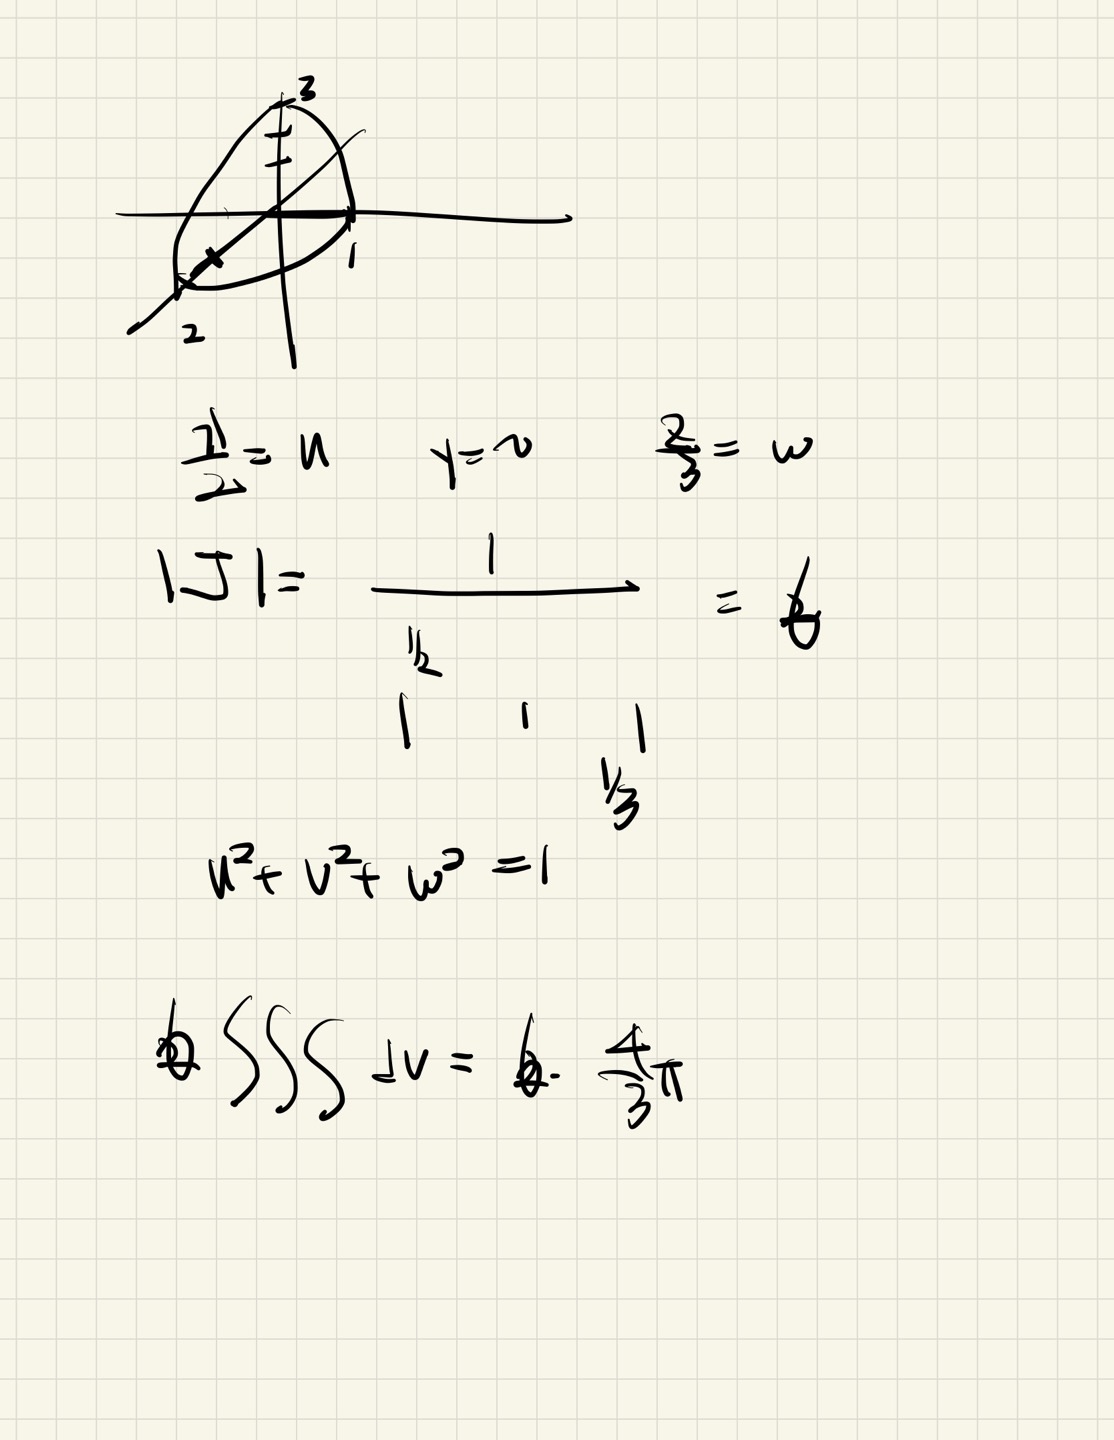 3
1
2
x/2 = u y = v z/3 = w
|J| = 1 / = 6
1/2
1 1 1
1/3
u² + v² + w² = 1
6 ∫∫∫ dv = 6 · 4/3 π